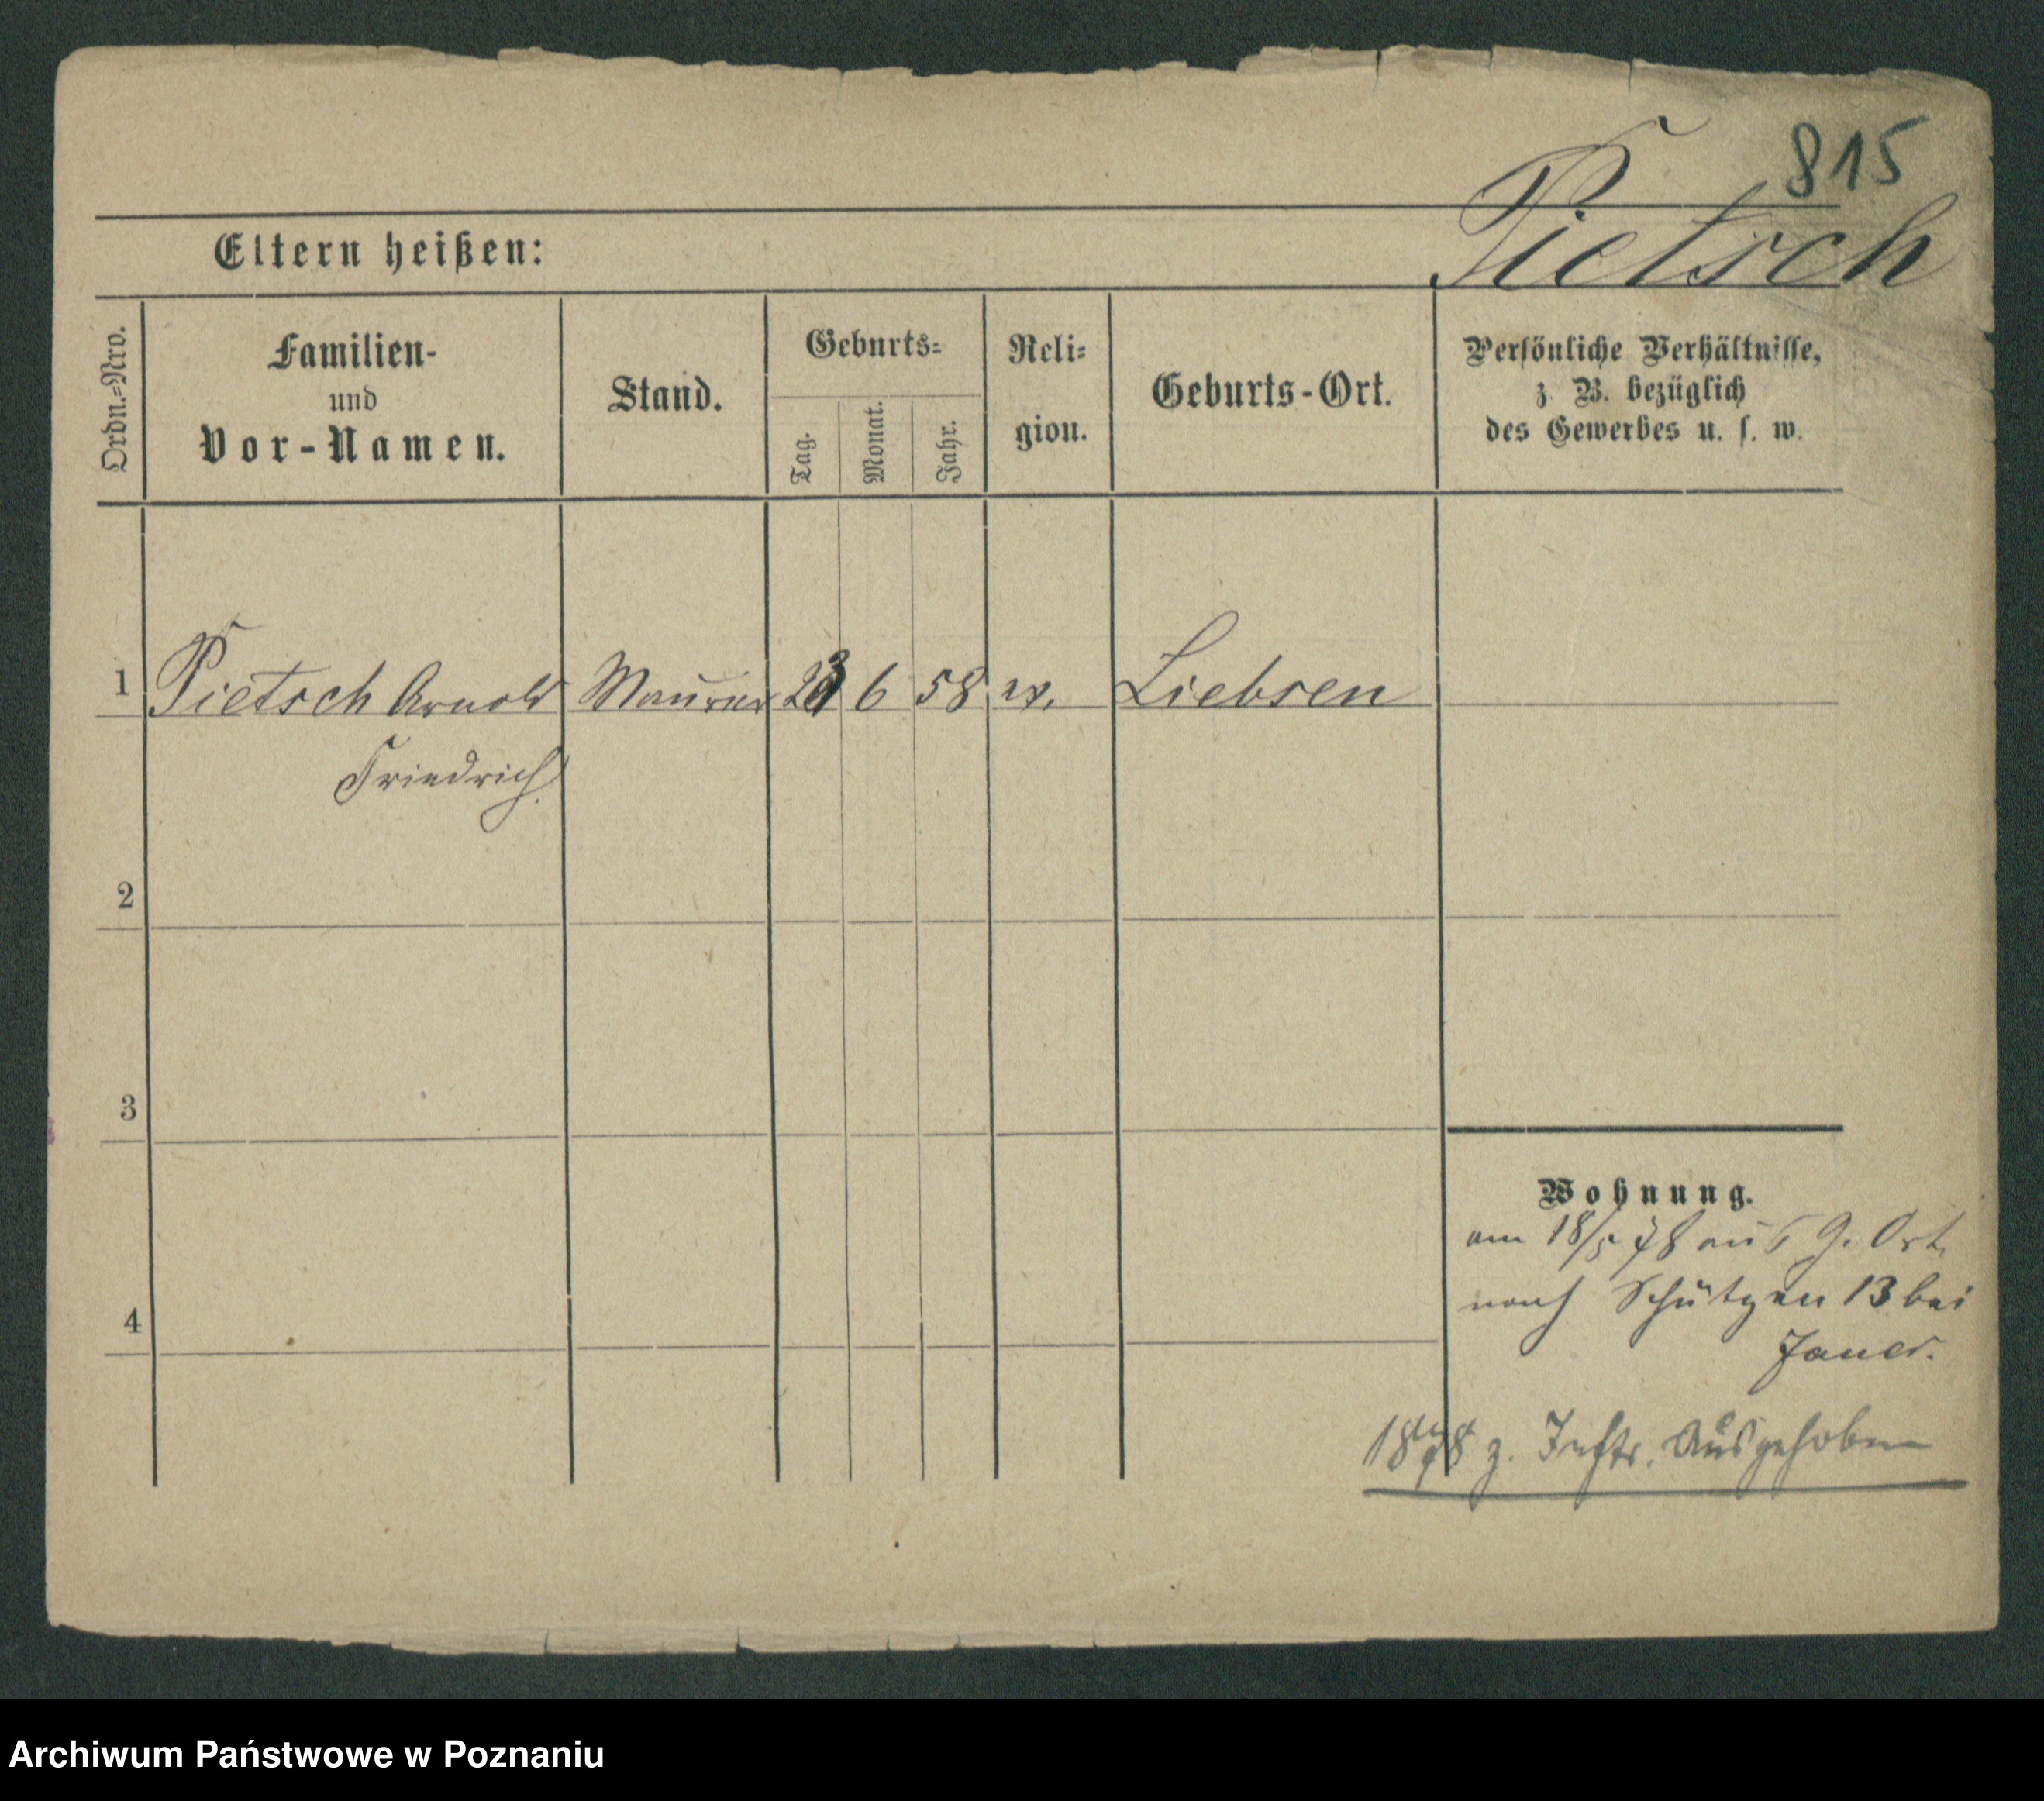 815
Pietsch
Eltern heißen:
Ordn.=Nro.
Familien-
und
Vor-Namen.
Stand.
Geburts=
Tag.
Monat.
Jahr.
Reli=
gion.
Geburts-Ort.
Persönliche Verhältnisse,
z. B. bezüglich
des Gewerbes u. s. w.
1 Pietsch Arnold Maurer 23 6 58 ev. Liebsen
Friedrich
2
3
4
Wohnung.
am 18/5 78 aus g. Ort.
nach Schützen 13 bei
Jauer.
1878 z. Inftr. Ausgehoben
Archiwum Państwowe w Poznaniu